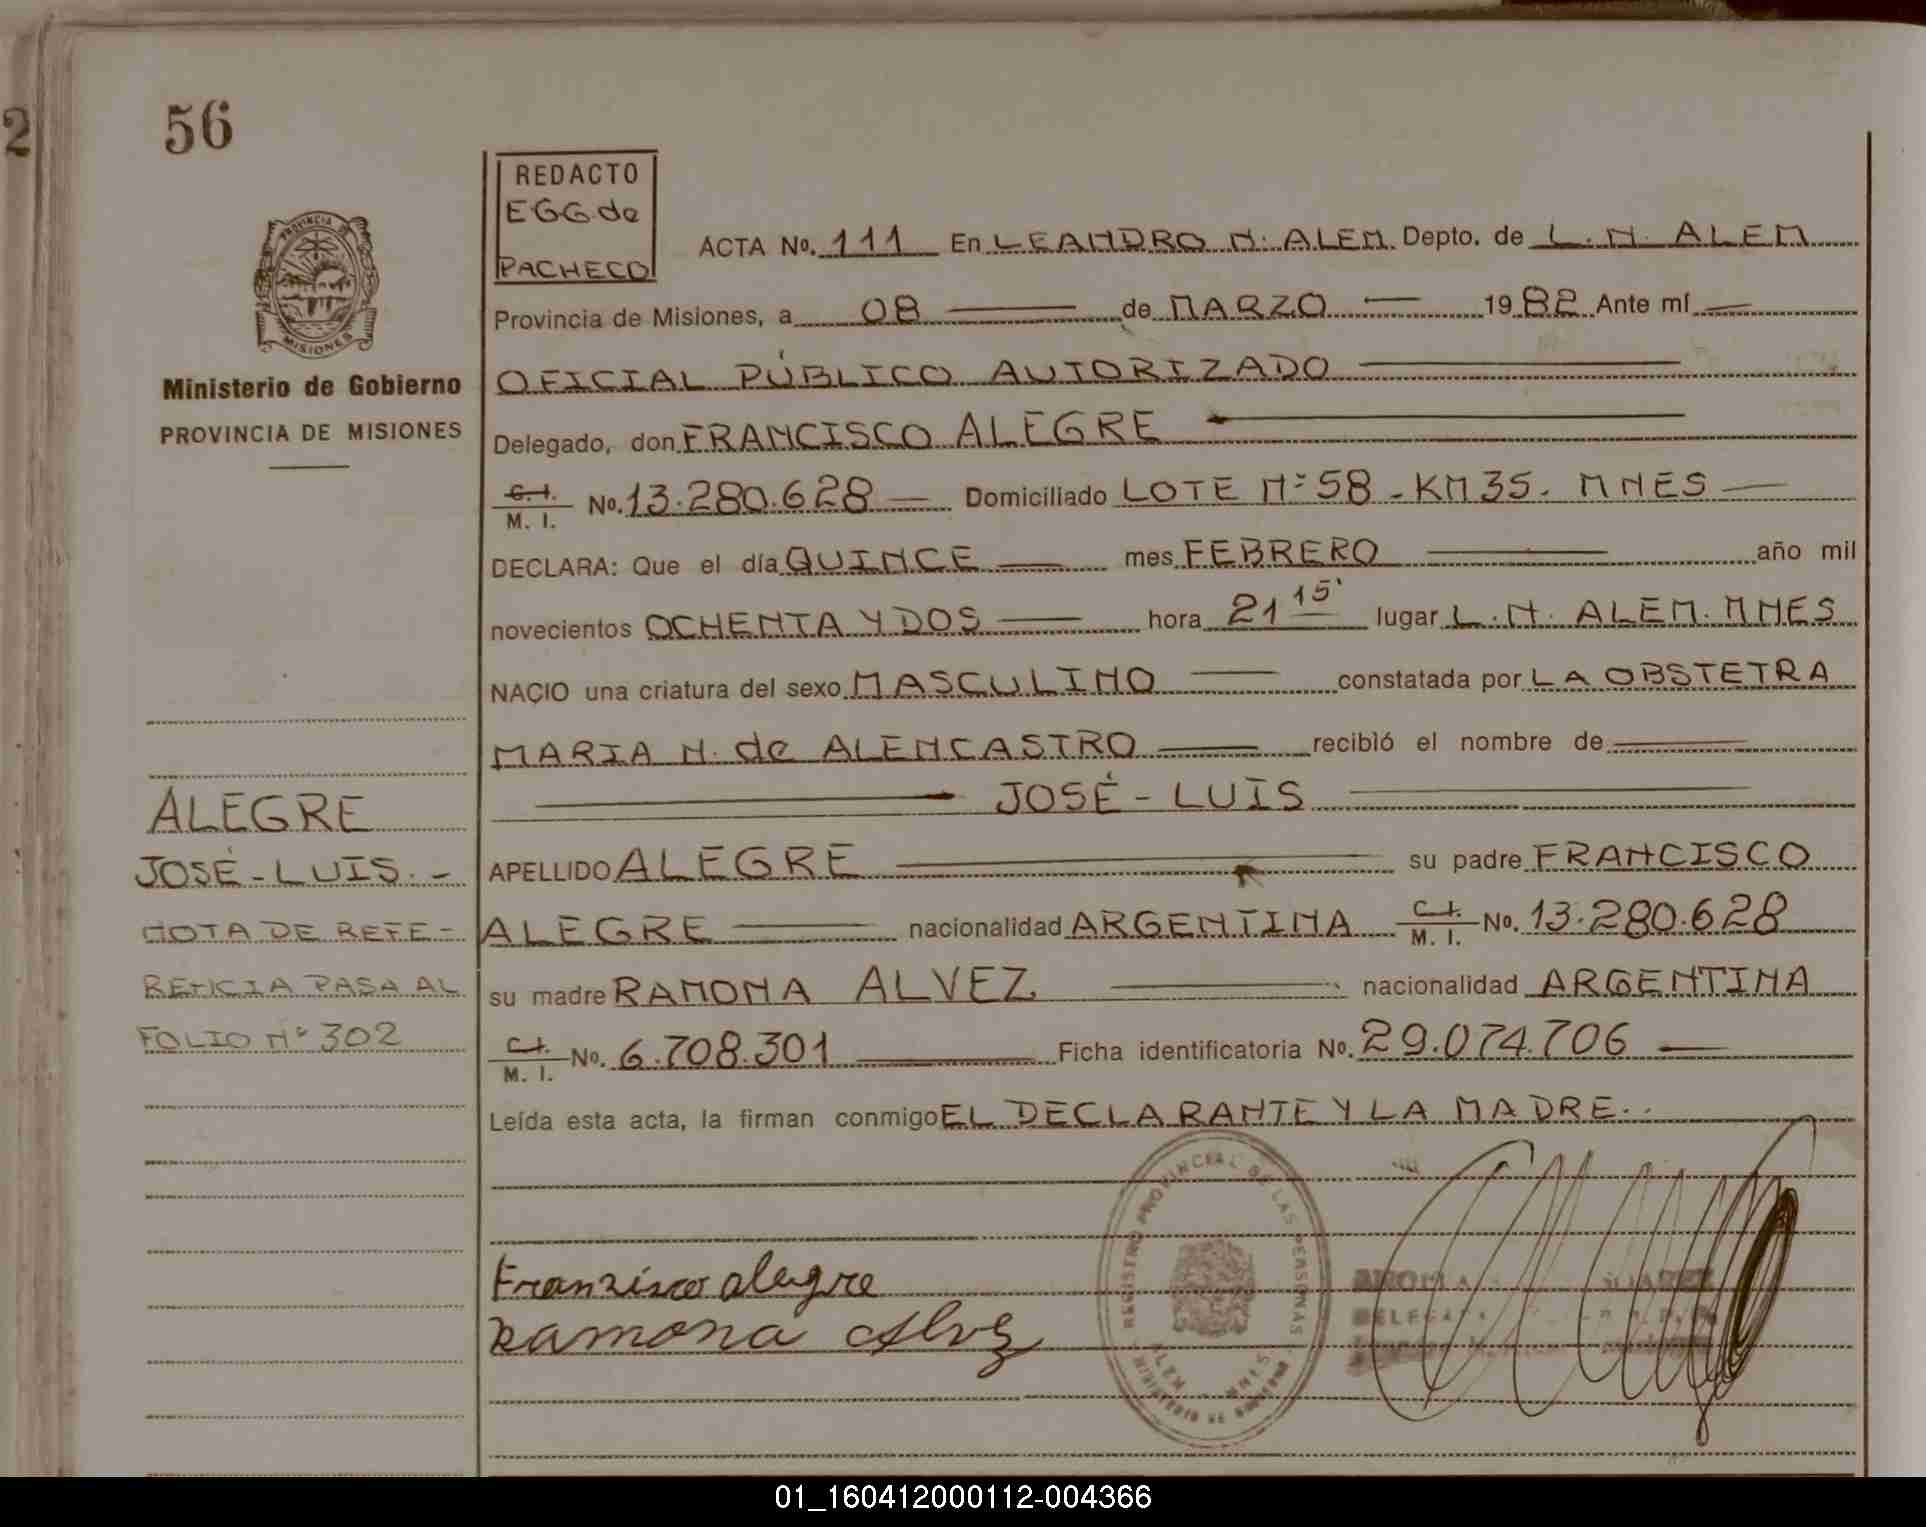 2
56
PROVINCIA DE
MISIONES
Ministerio de Gobierno
PROVINCIA DE MISIONES
ALEGRE
JOSÉ-LUIS.-
NOTA DE REFE-
RENCIA PASA AL
FOLIO Nº 302
REDACTO
EGG de
PACHECO
ACTA No. 111 En LEANDRO N. ALEM. Depto. de L. N. ALEM
Provincia de Misiones, a 08 de MARZO 1982 Ante mí
OFICIAL PÚBLICO AUTORIZADO
Delegado, don FRANCISCO ALEGRE
C.I. / M. I. No. 13.280.628 Domiciliado LOTE Nº 58 - KM 35. MNES
DECLARA: Que el día QUINCE mes FEBRERO año mil
novecientos OCHENTA Y DOS hora 21 15' lugar L. N. ALEM. MNES
NACIO una criatura del sexo MASCULINO constatada por LA OBSTETRA
MARIA N. de ALENCASTRO recibió el nombre de
JOSÉ - LUIS
APELLIDO ALEGRE su padre FRANCISCO
ALEGRE nacionalidad ARGENTINA C.I. / M. I. No. 13.280.628
su madre RAMONA ALVEZ nacionalidad ARGENTINA
C.I. / M. I. No. 6.708.301 Ficha identificatoria No. 29.074.706
Leída esta acta, la firman conmigo EL DECLARANTE Y LA MADRE..
REGISTRO PROVINCIAL DE LAS PERSONAS
MINISTERIO DE GOBIERNO
Franzisco alegre
Ramona Alvez
SUAREZ
01_160412000112-004366